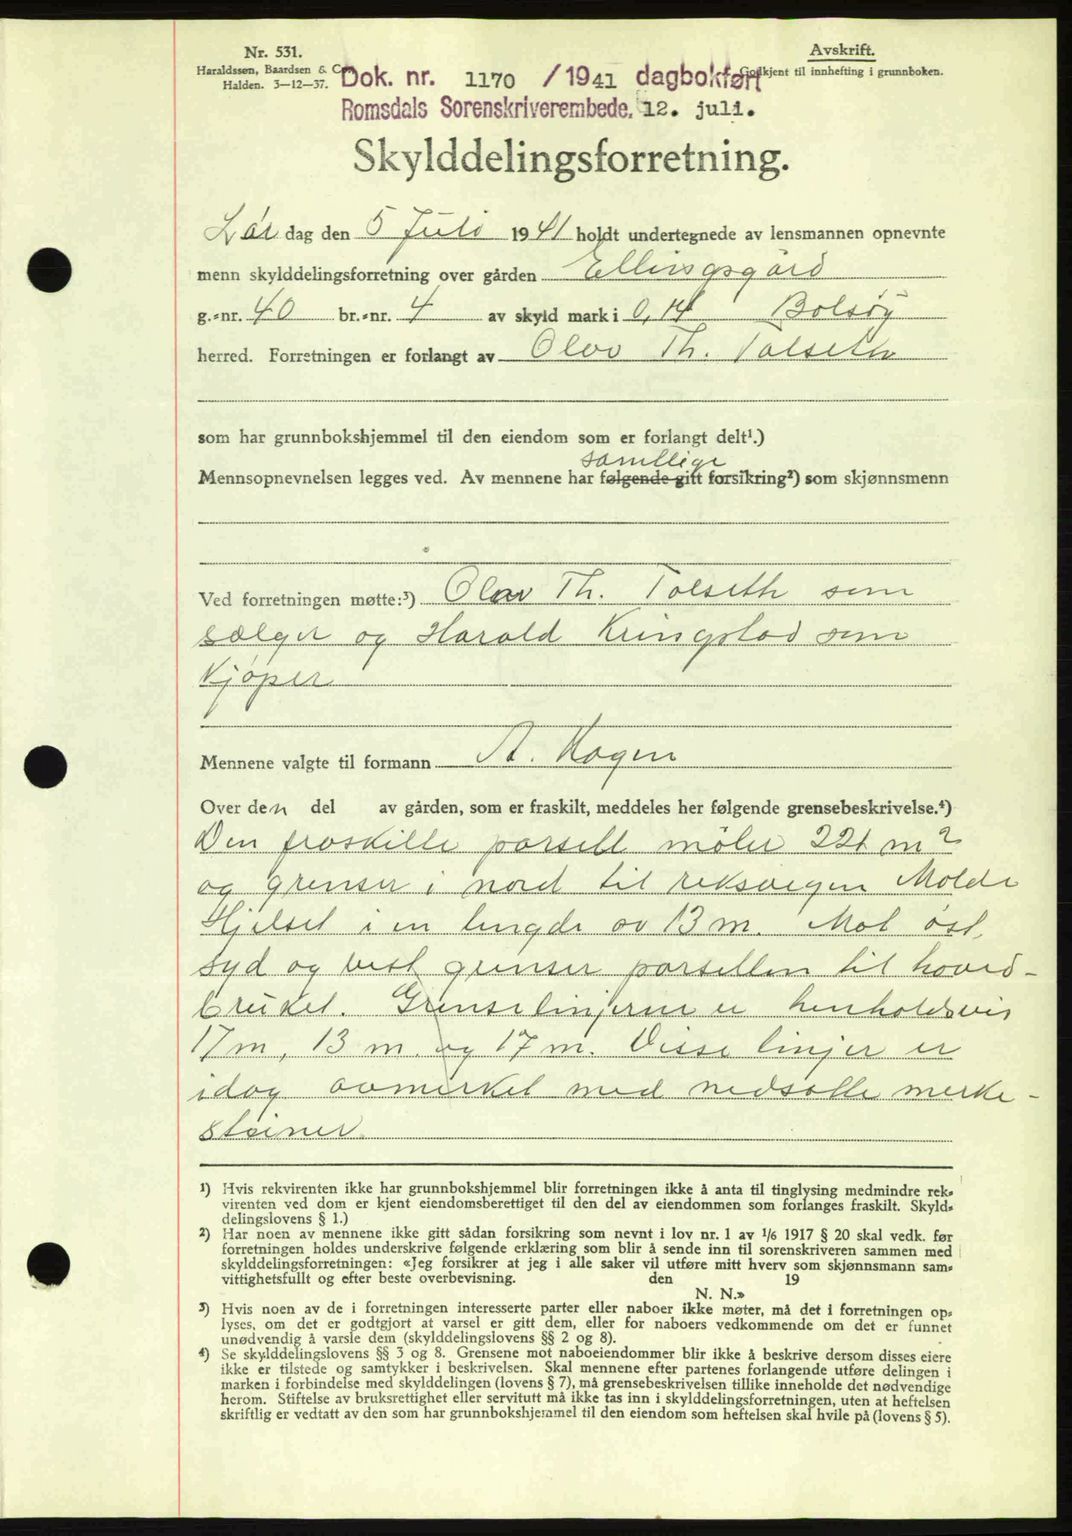 Nr. 531.
Haraldssen, Baardsen & C
Halden. 3-12-37.
Avskrift.
Godkjent til innhefting i grunnboken.
Dok. nr. 1170 /1941 dagbokført
Romsdals Sorenskriverembede, 12. juli.
Skylddelingsforretning.
Lør dag den 5 Juli 1941 holdt undertegnede av lensmannen opnevnte
menn skylddelingsforretning over gården Ellingsgård
g.-nr. 40 br.-nr. 4 av skyld mark i 0,14 Bolsøy
herred. Forretningen er forlangt av Olav Th. Tolseth
som har grunnbokshjemmel til den eiendom som er forlangt delt¹.)
samtlige
Mennsopnevnelsen legges ved. Av mennene har følgende gitt forsikring²) som skjønnsmenn
Ved forretningen møtte:³) Olav Th. Tolseth som
sælger og Harald Kringstad som
kjøper
Mennene valgte til formann A. Hagen
Over den del av gården, som er fraskilt, meddeles her følgende grensebeskrivelse.⁴)
Den fraskilte parsell måler 221 m²
og grenser i nord til riksvegen Molde
Hjelset i en lengde av 13 m. Mot øst,
syd og vest grenser parsellen til hoved-
bruket. Grenselinjerne er henholdsvis
17 m, 13 m. og 17 m. Disse linjer er
idag avmerket med nedsatte merke-
steiner.
¹) Hvis rekvirenten ikke har grunnbokshjemmel blir forretningen ikke å anta til tinglysing medmindre rek-
virenten ved dom er kjent eiendomsberettiget til den del av eiendommen som forlanges fraskilt. Skyld-
delingslovens § 1.)
²) Har noen av mennene ikke gitt sådan forsikring som nevnt i lov nr. 1 av 1/6 1917 § 20 skal vedk. før
forretningen holdes underskrive følgende erklæring som blir å sende inn til sorenskriveren sammen med
skylddelingsforretningen: «Jeg forsikrer at jeg i alle saker vil utføre mitt hverv som skjønnsmann sam-
vittighetsfullt og efter beste overbevisning. den 19
N. N.»
³) Hvis noen av de i forretningen interesserte parter eller naboer ikke møter, må det i forretningen op-
lyses, om det er godtgjort at varsel er gitt dem, eller for naboers vedkommende om det er funnet
unødvendig å varsle dem (skylddelingslovens §§ 2 og 8).
⁴) Se skylddelingslovens §§ 3 og 8. Grensene mot naboeiendommer blir ikke å beskrive dersom disses eiere
ikke er tilstede og samtykker i beskrivelsen. Skal mennene efter partenes forlangende utføre delingen i
marken i forbindelse med skylddelingen (lovens § 7), må grensebeskrivelsen tillike inneholde det nødvendige
herom. Stiftelse av bruksrettighet eller servitutt må ikke tas inn i skylddelingsforretningen, uten at heftelsen
skriftlig er vedtatt av den som har grunnbokshjemmel til den eiendom som heftelsen skal hvile på (lovens § 5).